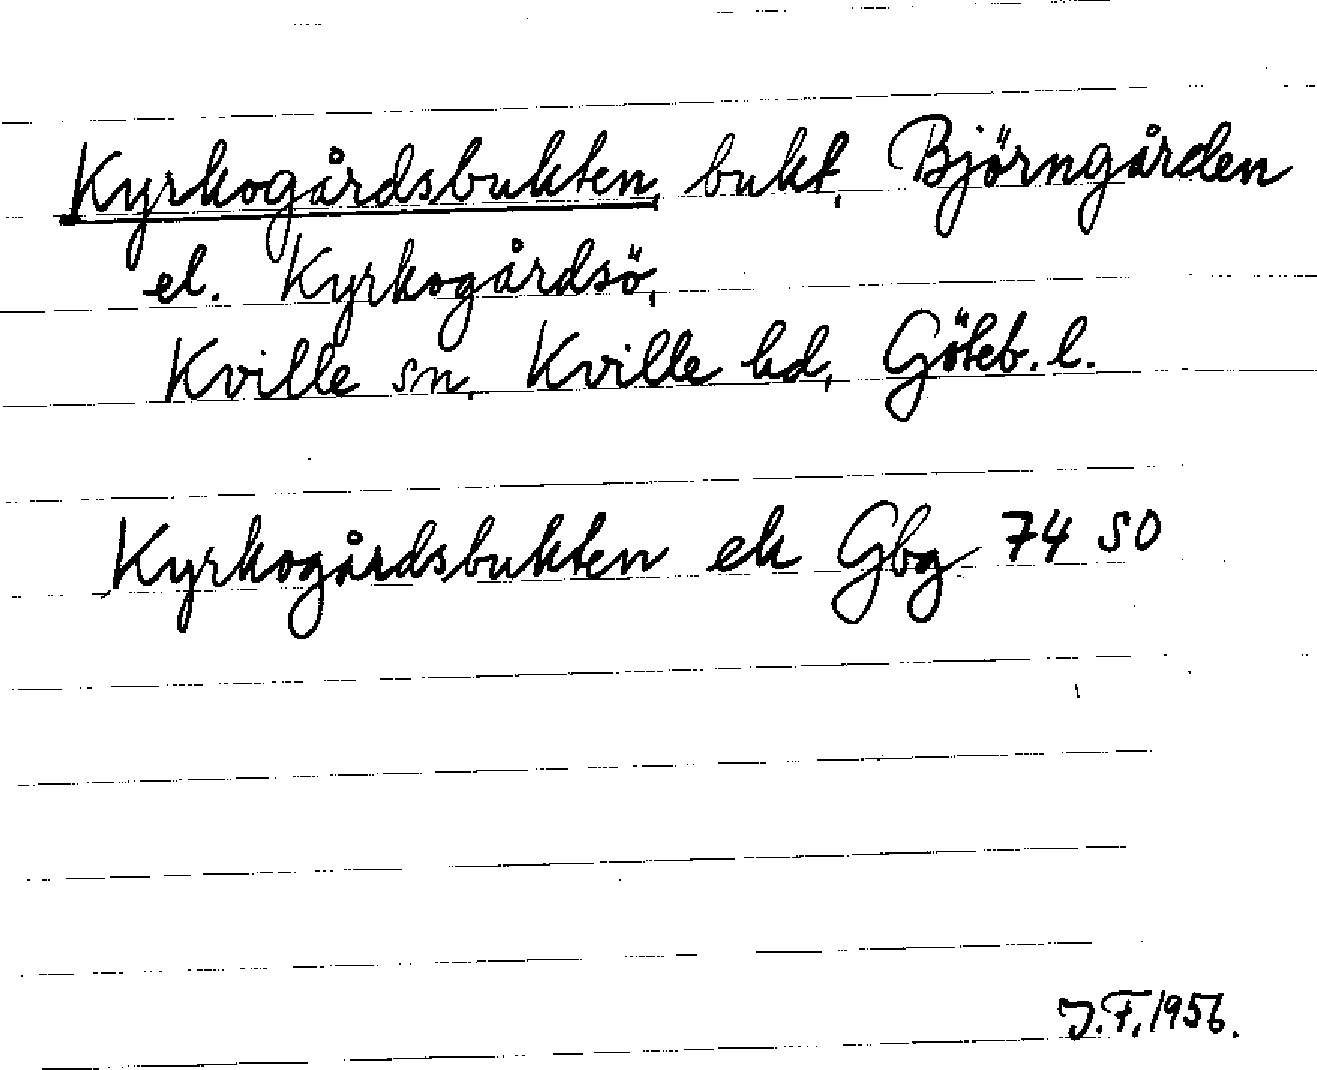 Kyrkogårdsbukten, bukt, Björngården
el. Kyrkogårdsö,
Kville sn, Kville hd, Göteb. l.
Kyrkogårdsbukten ek Gbg 74 SO
J.F. 1956.